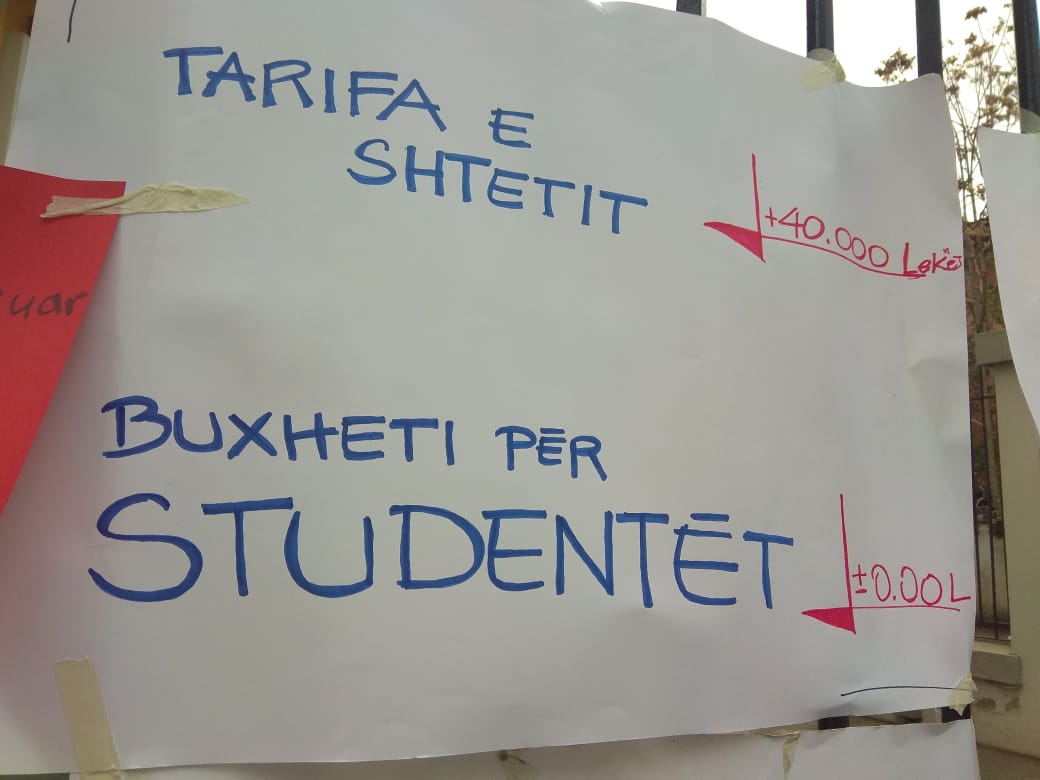 TARIFA E
SHTETIT
+40.000 Lekë
uar
BUXHETI PËR
STUDENTËT
±0.00L